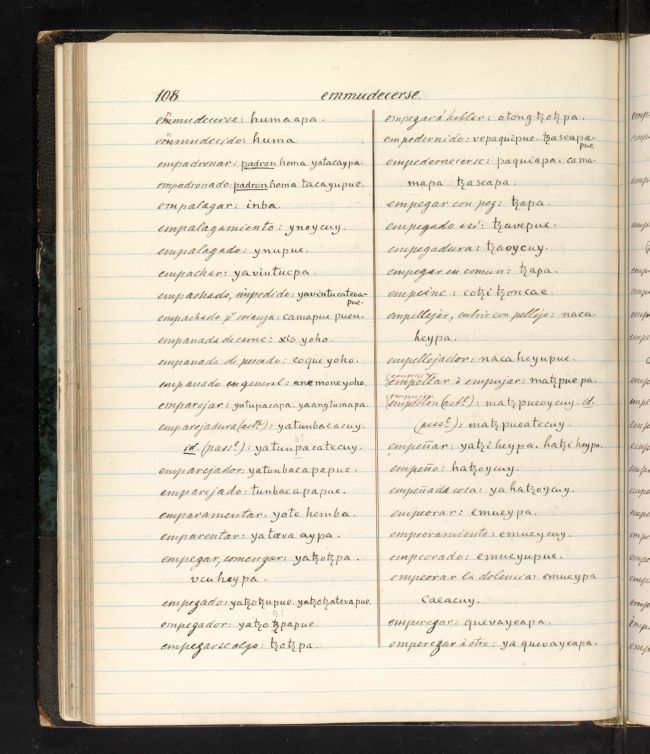 108
emmudecerse.
emmudecerse: humaapa.
emmudecido: huma
empadronar: padron homa yatacaypa.
empadronado: padron homa tacayupue.
empalagar: inba.
empalagamiento: ynoycuy.
empalagado: ynupue.
empachar: yaviutucpa.
empachado, impedido: yavintucateva-
pue.
empachado pr crianza: camapue puen.
empanada de carne: xis yoho.
empanada de pescado: coque yoho.
empanado en general: anemoneyoho.
emparejar: yatupacapa. yaangtumapa.
emparejadura (acta.): yatunbacacuy.
id. (pasa.): yatunpacatecuy.
emparejador: yatunbacapapue.
emparejado: tunbacapapue.
emparamentar: yote hemba.
emparentar: yatæva aypa.
empegar, comenzar: yatzotzpa.
vcuheypa.
empegado: yatzotzupue. yatzotzatevapue.
empegador: yatzotzpapue
empegarse algo: tzotzpa.
empegar á hablar: otong tzotzpa.
empedernido: vepaquipue. tzaseapa-
pue.
empedernecerse: paquiapa. cama-
mapa. tzaseapa.
empegar con pez: tzapa.
empegado así: tzavepue.
empegadura: tzaoycuy.
empegar en comun: tzapa.
empeine: cotzi tzoncae.
empellejàr, cubrir con pellejo: naca-
heypa.
empellejador: naca heyupue.
empellar ò empujar: matzpue pa.
empellon (acto.): matzpueoycuy. id.
(paso.): matzpueatecuy.
empeñar: yatzi heypa. hatzi heypa.
empeño: hatzoycuy.
empeñada cosa: ya hatzoycuy.
empeorar: emueypa.
empeoramiento: emueycuy.
empeorado: emueyupue.
empeorar la dolencia: emueypa
caeacuy.
emperegar: quevayeapa.
emperegar à otro: ya quevayeapa.